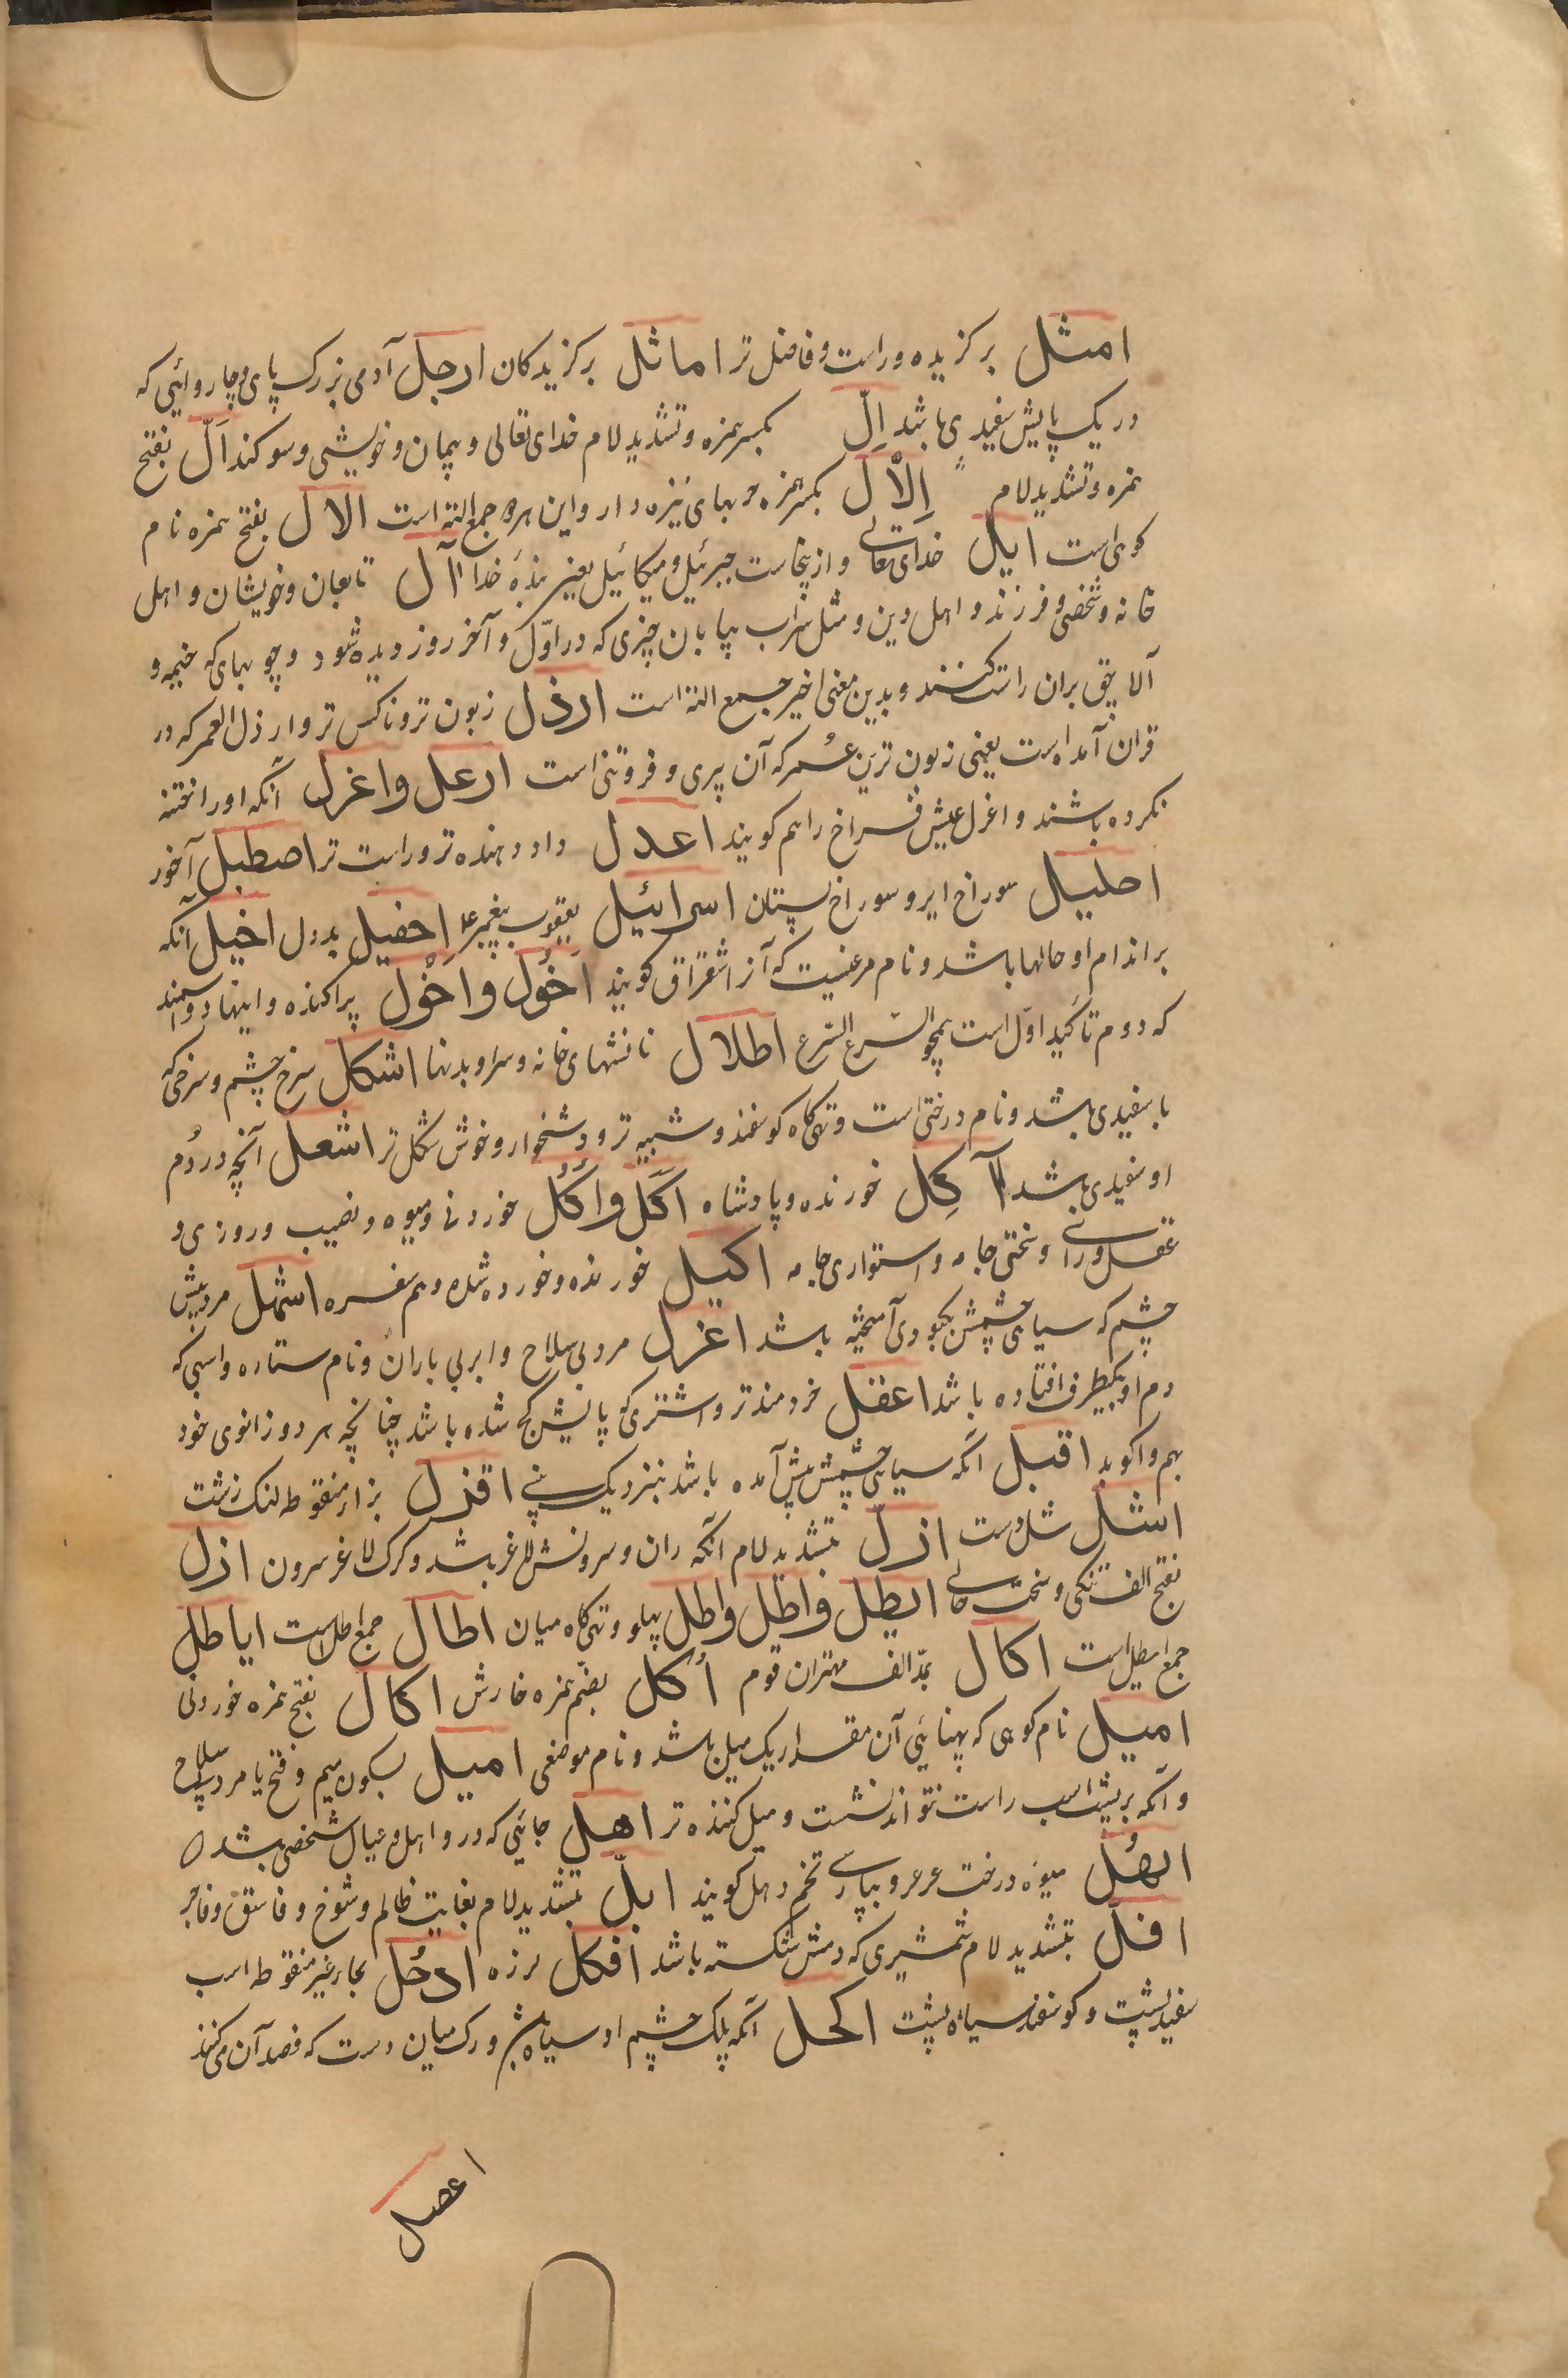 امثل برگزیده و راست و فاضل تر اماثل برگزیدگان ارجل آدمی بزرگ پای و چاروائی که
در یک پایش سفیدی باشد اِلّ بکسر همزه و تشدید لام خدای تعالی و پیمان و خویشی و سوکند اَلّ بفتح
همزه و تشدید لام اِلاْل بکسر همزه چوبهای نیزه دار و این هر دو جمع الته است الال بفتح همزه نام
کوهی است ایل خدای تعالی و ازینجاست جبرئیل و میکائیل یعنی بندهٔ خدا آل تابعان و خویشان و اهل
خانه و شخص و فرزند و اهل دین و مثل سراب بیابان چیزی که در اوّل و آخر روز دیده شود و چوبهای که خیمه و
آلاچق بران راست کنند و بدین معنی اخیر جمع الته است ارذل زبون تر و ناکس تر و ارذل العمر که در
قران آمده است یعنی زبون ترین عمر که آن پیری و فروتنی است ارعل واغرل آنکه او را ختنه
نکرده باشند و اغرل عیش فراخ را هم کویند اعدل داد دهنده تر و راست تر اصطبل آخور
احلیل سوراخ ایر و سوراخ پستان اسرائیل یعقوب پیغمبر ع اِجفیل بددل اخیل آنکه
بر اندام او خالها باشد و نام مرغیست که آنرا شقراق کویند اَخْوَل واخْوَل پراکنده و اینها دو اسمند
که دوم تاکید اوّل است همچو السرع السرع اطلال نشانهای خانه و سرا و بدنها اشکل سرخ چشم و سرخی که
با سفیدی باشد و نام درختی است و تهی گاه کوسفند و شبیه تر و دشخوار و خوش شکل تر اشعل آنچه در دُم
او سفیدی باشد آکِل خورنده و پادشاه اُکل واُکُل خوردنی و میوه و نصیب و روزی و
عقل و رای و سختی جامه و استواری جامه اکیل خورنده و خورده شده و هم سفره اشهل مرد میش
چشم که سیاهی چشمش بکبودی آمیخته باشد اعزل مرد بی سلاح و ابر بی باران و نام ستاره و اسپی که
دم او بیکطرف افتاده باشد اعقل خردمندتر و اشتری که پایش کج شده باشد چنانچه هر دو زانوی خود
بهم واکوبد اقبل آنکه سیاهی چشمش پیش آمده باشد بنزدیک بینی اقزل بزاء منقوطه لنک زشت
اشل شل دست ازلّ بتشدید لام آنکه ران و سرونش لاغر باشد و کرک لاغر سرون ازل
بفتح الف تنگی و سختی ایطل واطل واطل پهلو و تهی گاه میان اطال جمع اطل است ایاطل
جمع ایطل است اکال بمدّ الف مهتران قوم اُکل بضم همزه خارش اکال بفتح همزه خوردنی
امیل نام کوهی که پهنائی آن مقدار یک میل باشد و نام موضعی امیل بسکون میم و فتح یا مرد بی سلاح
و آنکه بر پشت اسب راست نتواند نشست و میل کننده تر اهل جائی که درو اهل و عیال شخصی باشد
ابهُل میوه درخت عرعر و بپارسی تخم دهل کویند ابلّ بتشدید لام بغایت ظالم و شوخ و فاسق و فاجر
افلّ بتشدید لام شمشیری که دمش شکسته باشد افکل لرزه ادحُل بحاء غیر منقوطه اسب
سفید پشت و کوسفند سیاه پشت اکحل آنکه پلک چشم او سیاه باشد و رک میان دست که فصد آن میکنند
اعصل